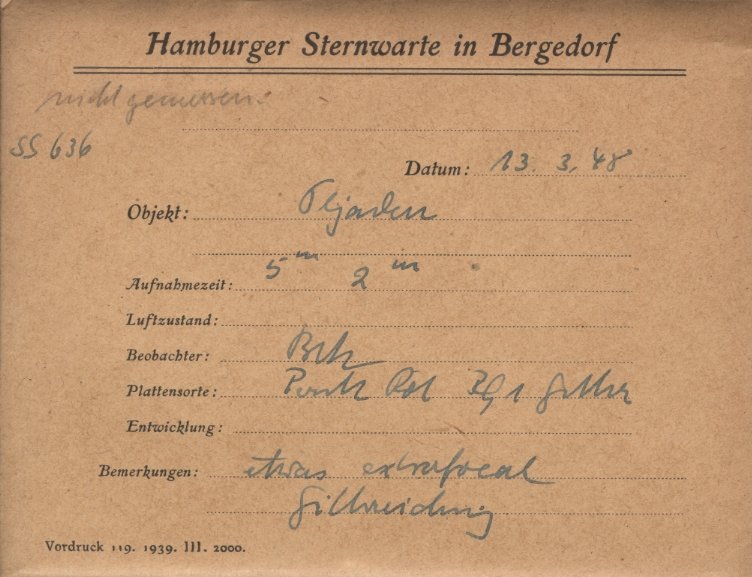 Hamburger Sternwarte in Bergedorf
nicht gemessen.
SS 636
Datum: 13. 3. 48
Objekt: Plejaden
5m 2m
Aufnahmezeit:
Luftzustand:
Beobachter:
Plattensorte:
Entwicklung:
Bemerkungen: etwas extrafocal
Vordruck 119. 1939. III. 2000.